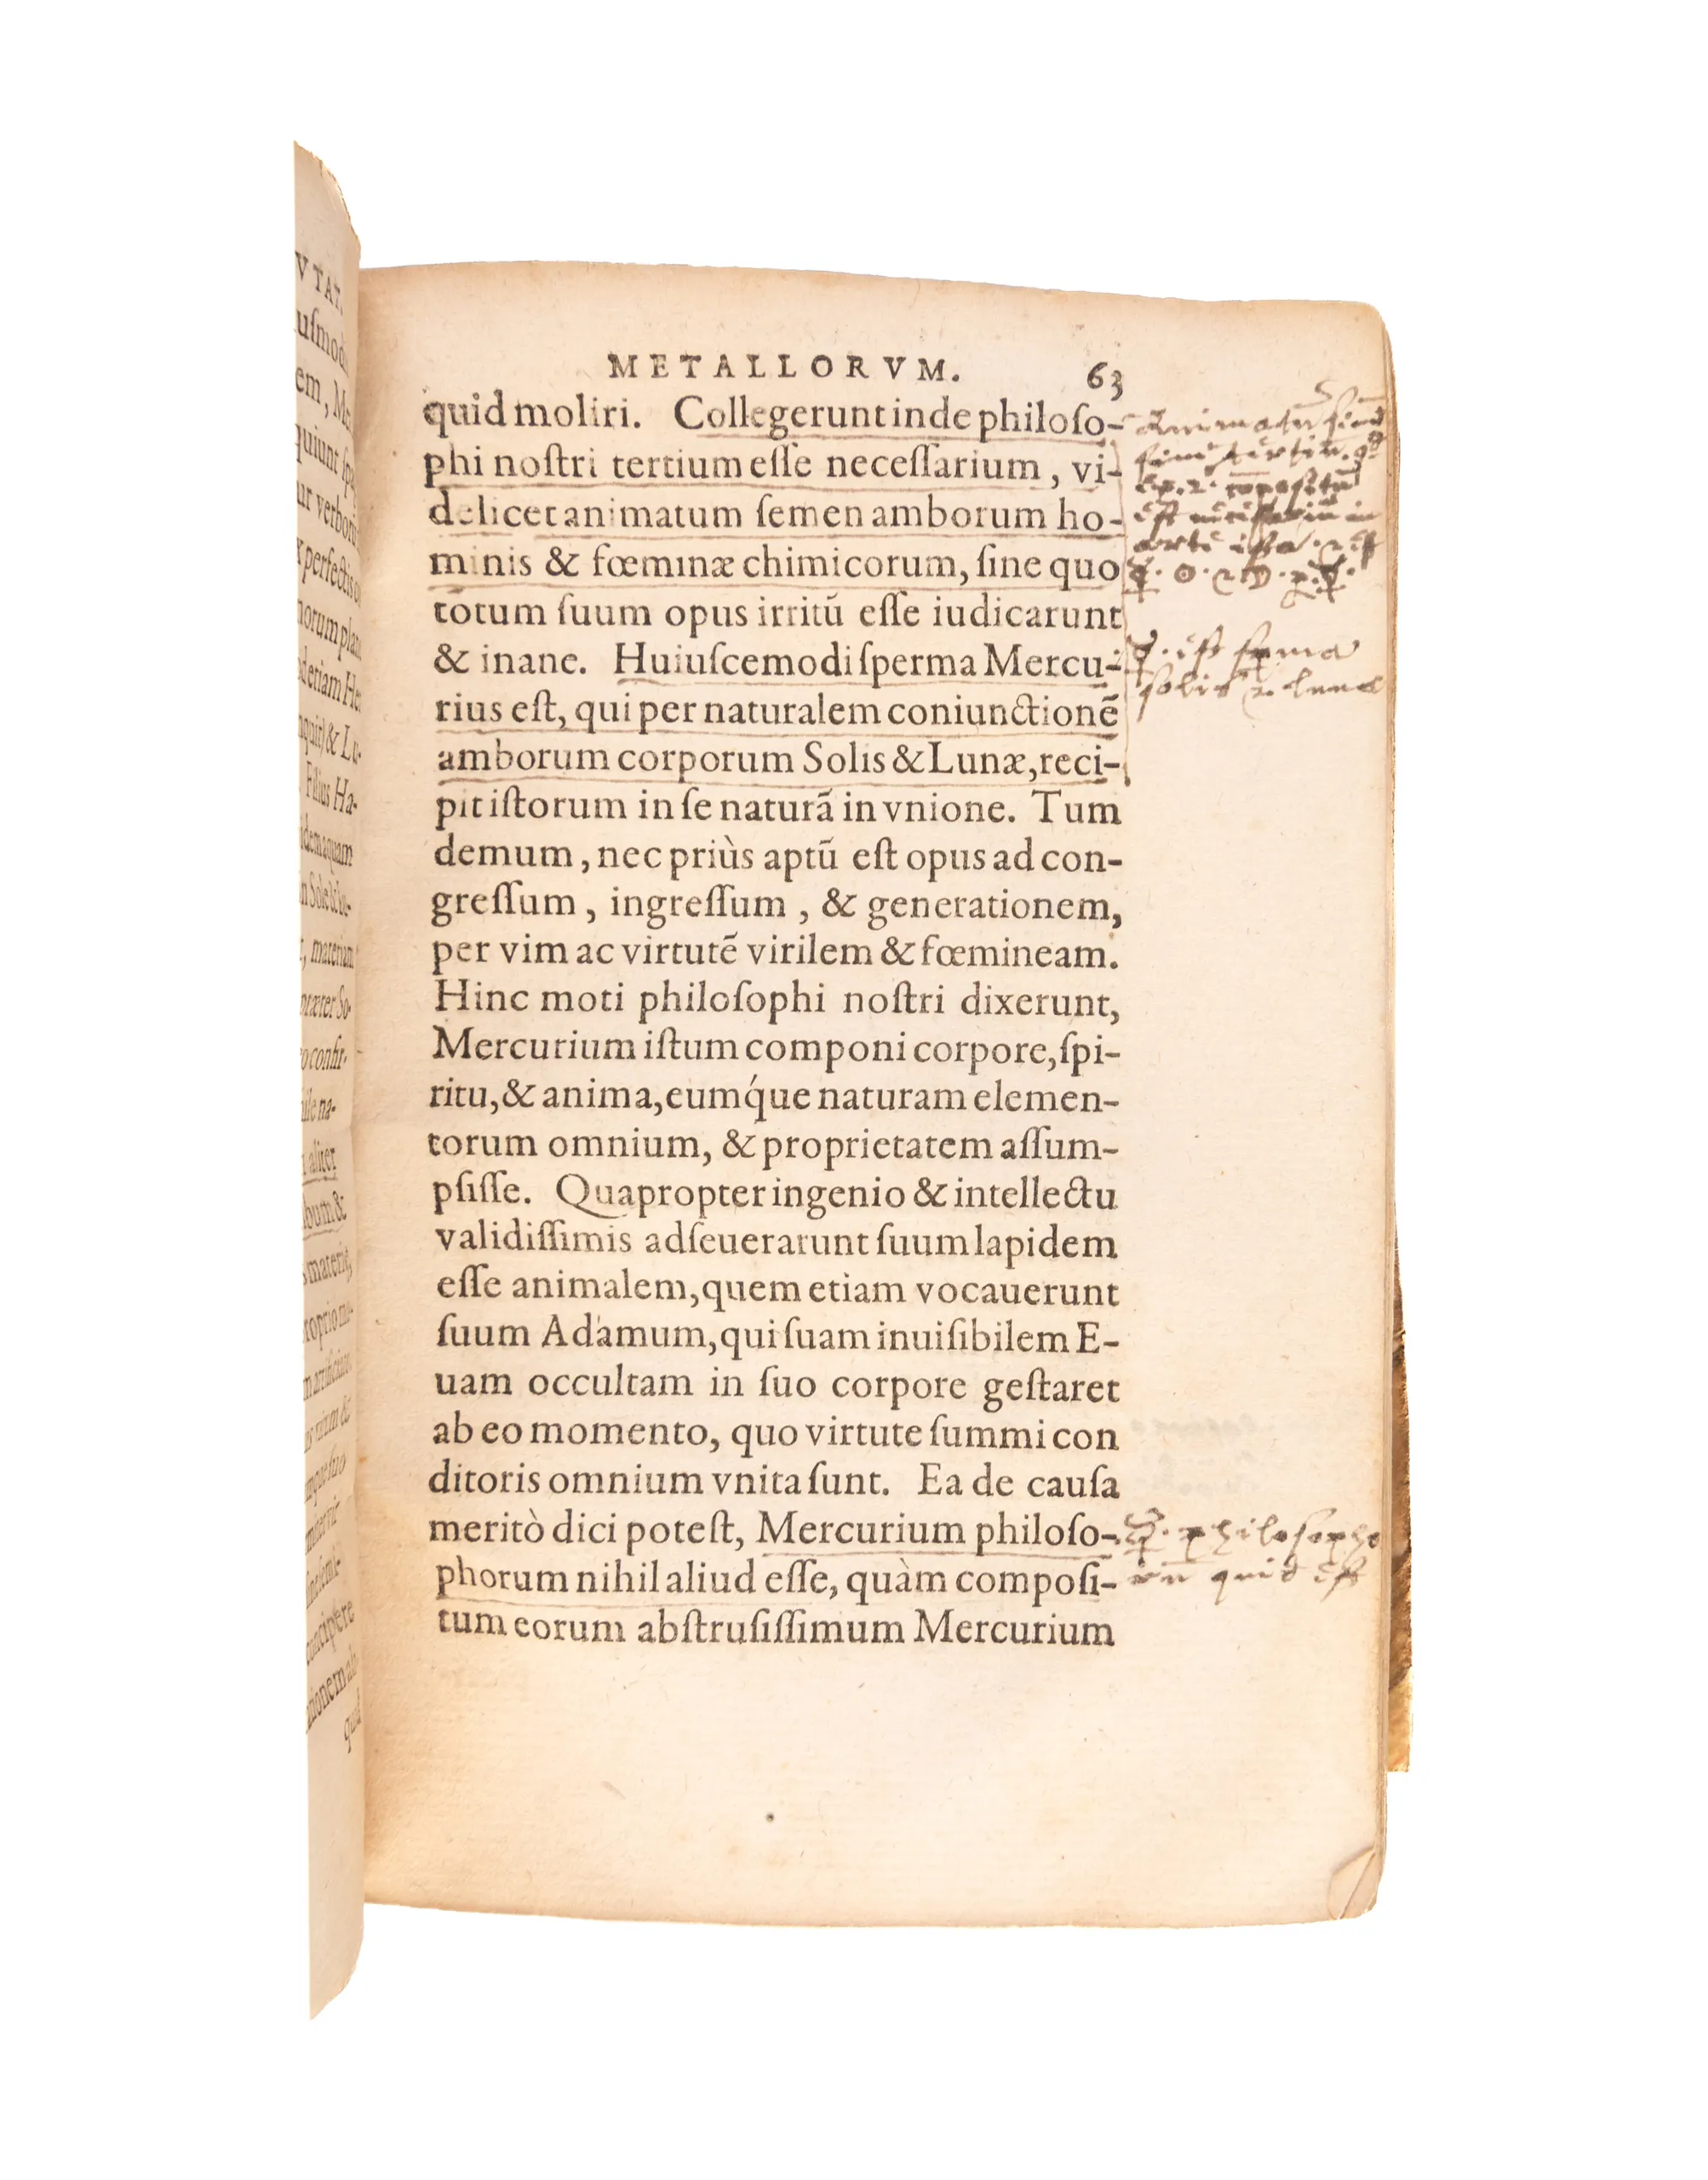 METALLORVM. 63
quid moliri. Collegerunt inde philoſo-
phi noſtri tertium eſſe neceſſarium, vi-
delicet animatum ſemen amborum ho-
minis & fœminæ chimicorum, ſine quo
totum ſuum opus irritũ eſſe iudicarunt
& inane. Huiuſcemodi ſperma Mercu-
rius eſt, qui per naturalem coniunctionẽ
amborum corporum Solis & Lunæ, reci-
pit iſtorum in ſe naturã in vnione. Tum
demum, nec priùs aptũ eſt opus ad con-
greſſum, ingreſſum, & generationem,
per vim ac virtutẽ virilem & fœmineam.
Hinc moti philoſophi noſtri dixerunt,
Mercurium iſtum componi corpore, ſpi-
ritu, & anima, eumq́ue naturam elemen-
torum omnium, & proprietatem aſſum-
pſiſſe. Quapropter ingenio & intellectu
validiſſimis adſeuerarunt ſuum lapidem
eſſe animalem, quem etiam vocauerunt
ſuum Adamum, qui ſuam inuiſibilem E-
uam occultam in ſuo corpore geſtaret
ab eo momento, quo virtute ſummi con
ditoris omnium vnita ſunt. Ea de cauſa
meritò dici poteſt, Mercurium philoſo-
phorum nihil aliud eſſe, quàm compoſi-
tum eorum abſtruſiſſimum Mercurium
est
arte ista
☿. est
solis & lunæ
☿. philosopho
rũ quid est